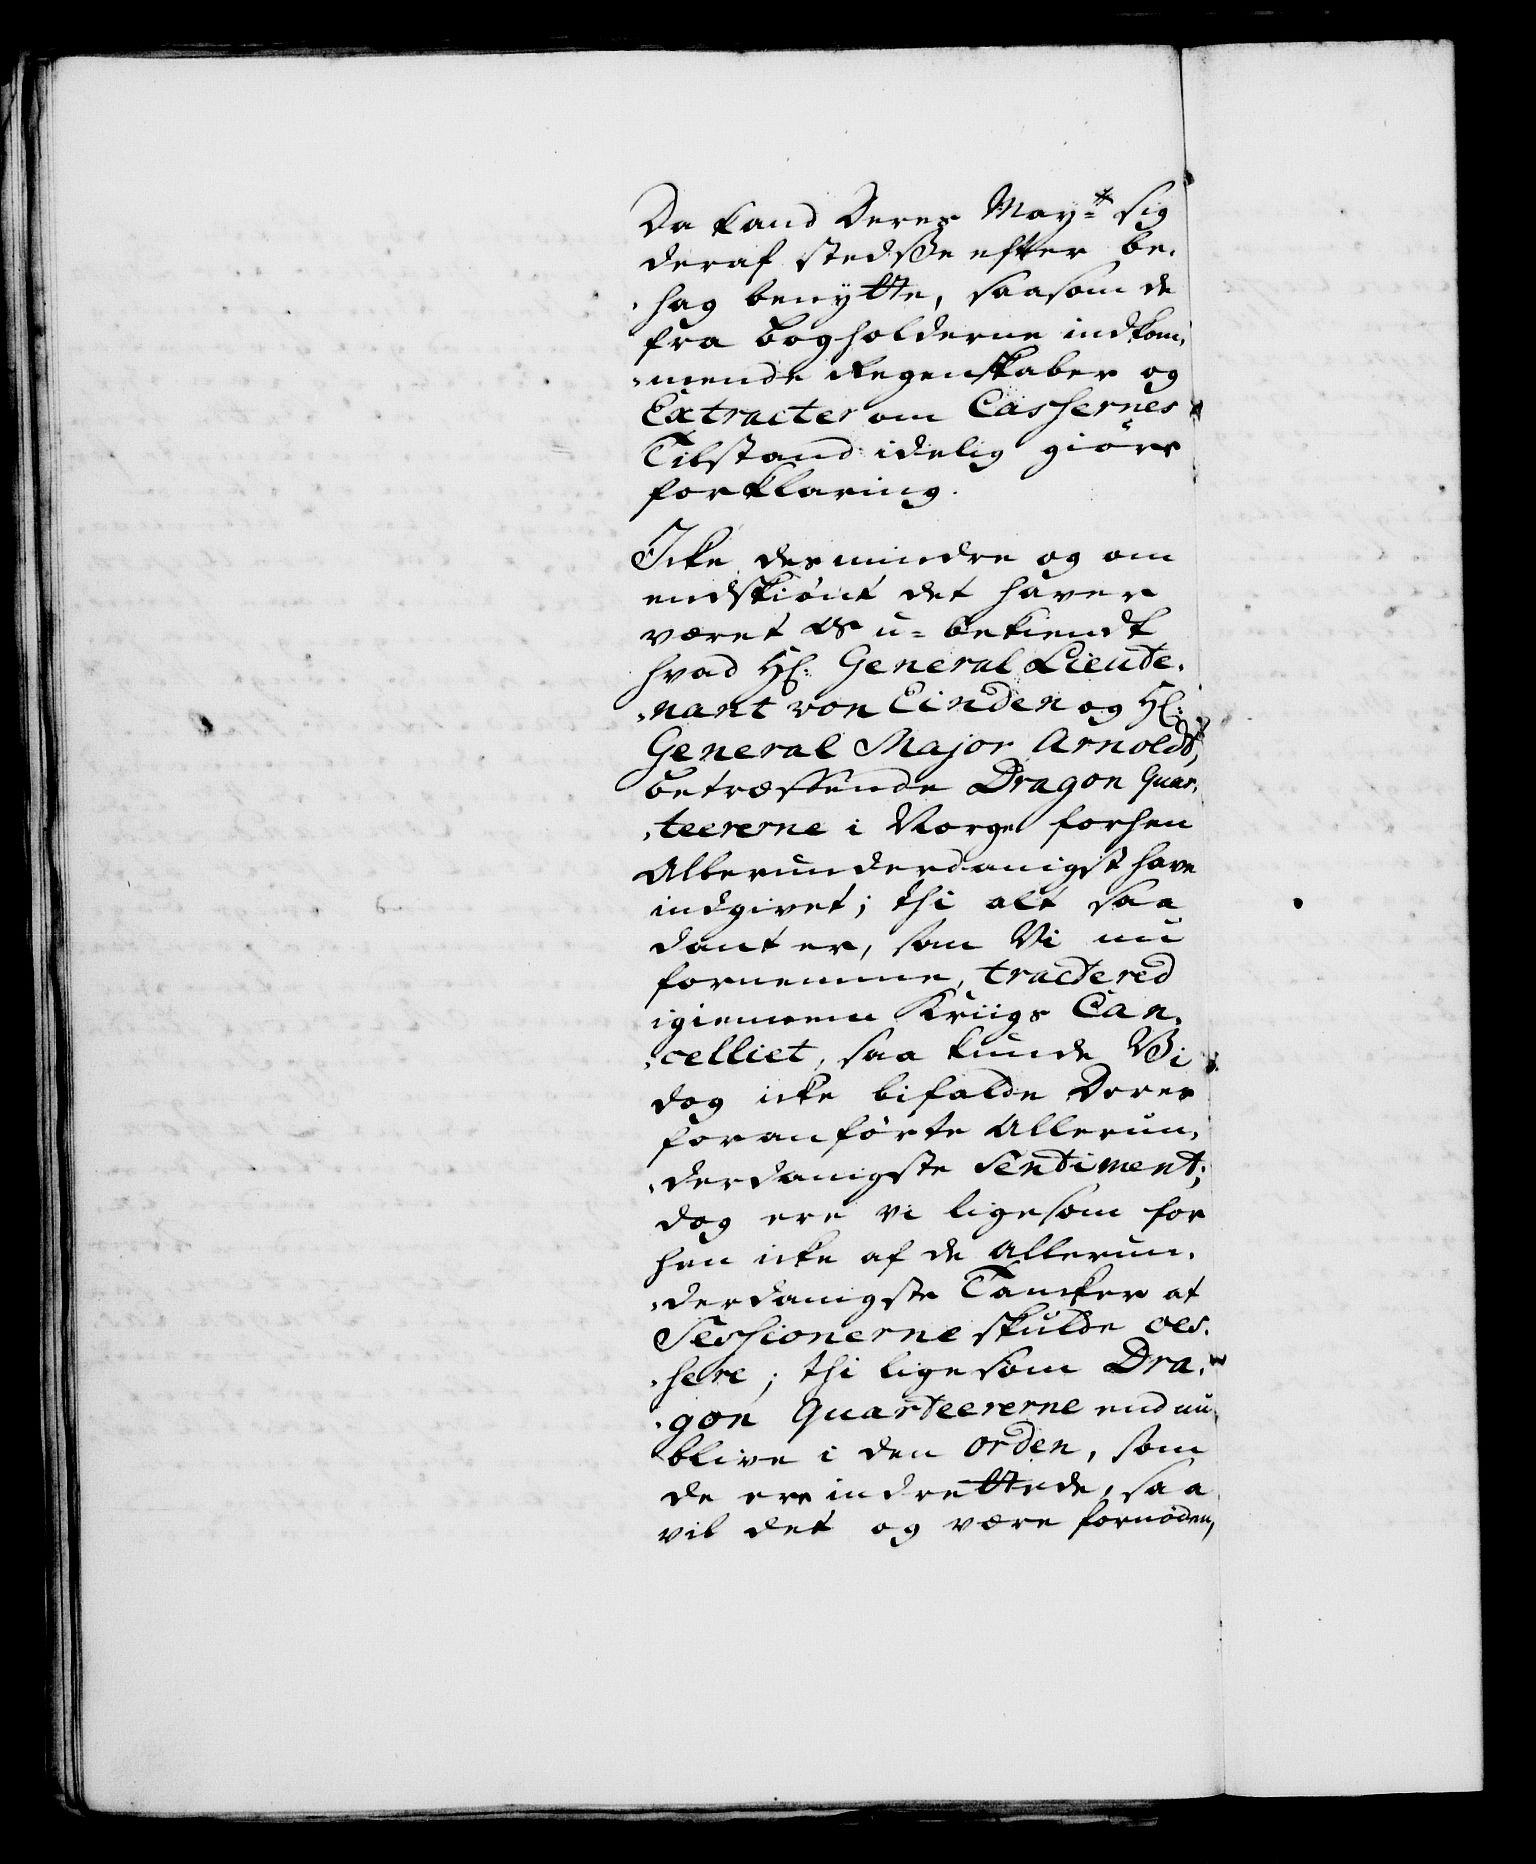 Da kand Deres May=t sig
deraf stedsse efter be„
„hag benytte, saasom de
fra bogholderne indkom„
„mende Regenskaber og
Extracter om Cassernes
Tilstand idelig giøre
forklaring.
Icke desmindre og om
endskiønt det haver
været os u=bekiendt
hvad Hl: General Lieute„
„nant von Einden og Hl:
General Major Arnoldt,
betræffende Dragon Quar„
„teererne i Norge forhen
Allerunderdanigst have
indgivet; thi alt saa
dant er, som Vi nu
fornemme, tractered
igiennem Kriigs Can„
„celliet, saa kunde Vi
dog icke bifalde Deres
foranførte Allerun„
„derdanigste Sentiment;
dog ere vi ligesom for
hen icke af de Allerun„
„derdanigste Tancker at
Sessionerne skulde ces„
„sere; thi ligesom Dra„
„gon Quarteererne endnu
blive i den orden, som
de ere indrettede, saa
vil det og være fornøden,